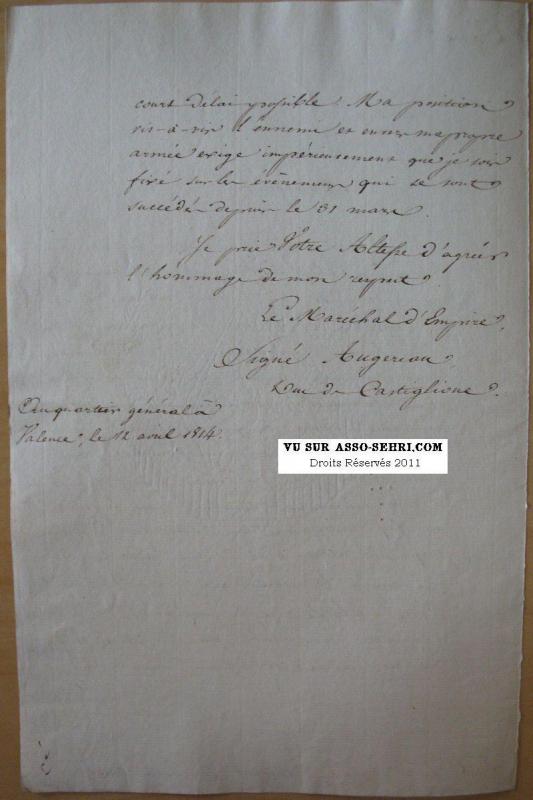 court délai possible. Ma position
vis-à-vis l'ennemi et envers ma propre
armée exige impérieusement que je sois
fixé sur les événemens qui se sont
succédés depuis le 31 mars.
Je prie Votre Altesse d'agréer
l'hommage de mon respect.
Le Maréchal d'Empire,
Signé Augereau,
Duc de Castiglione.
Au quartier général à
Valence, le 12 avril 1814.
VU SUR ASSO-SEHRI.COM
Droits Réservés 2011